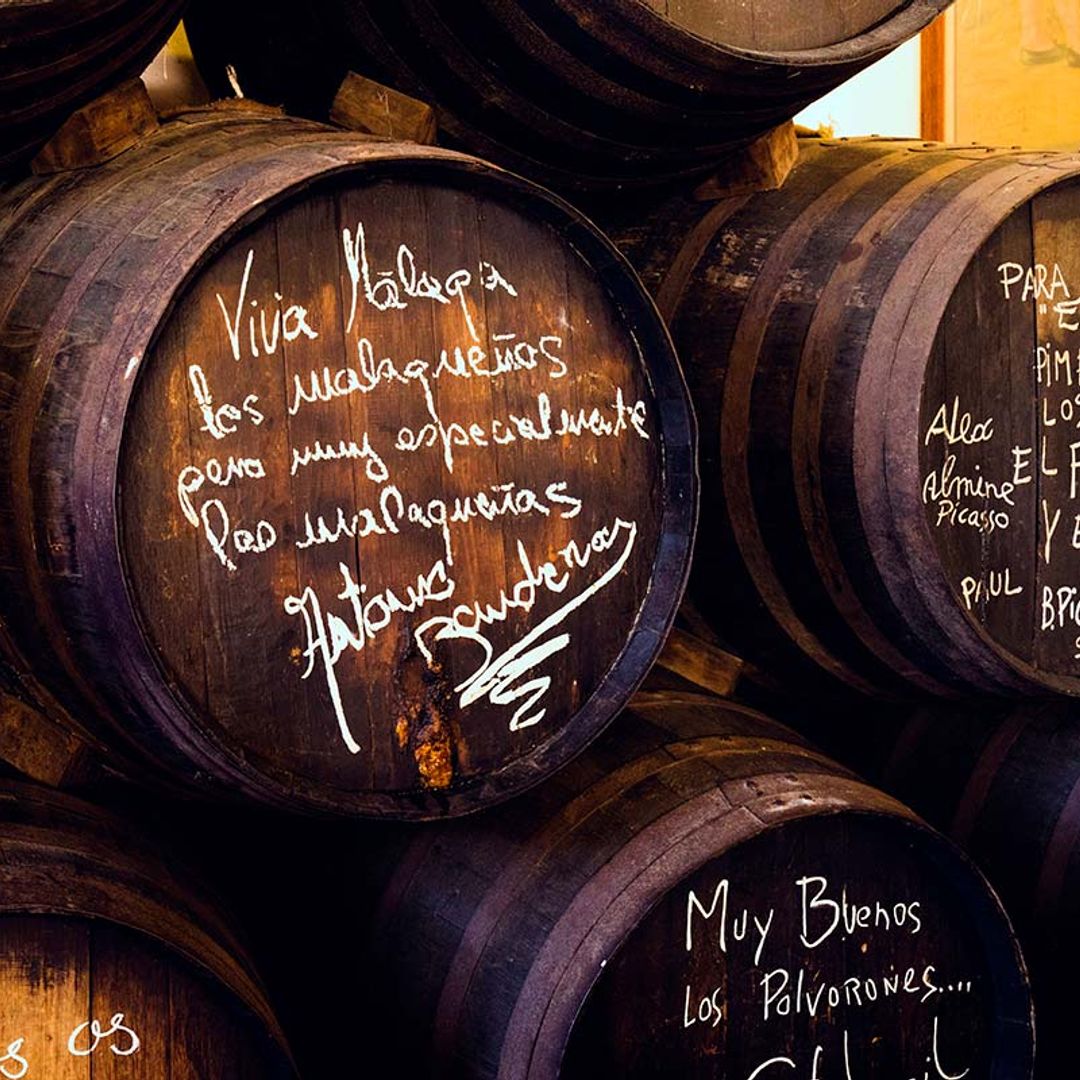 Viva Málaga
los malagueños
pero muy especialmente
las malagueñas
Antonio
Banderas
PARA
"E
PIM
LOS
Alex
EL
Almine
Picasso
VE
PAUL
B.Pic
Muy Buenos
Los Polvorones....
os